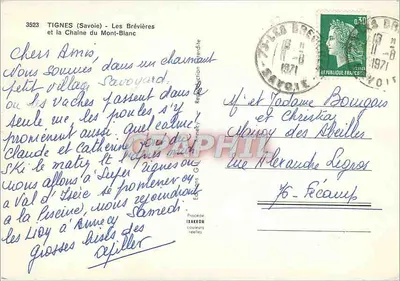 3523 TIGNES (Savoie) - Les Brévières
et la Chaîne du Mont-Blanc
Chers Amis,
Nous sommes dans un charmant
petit village Savoyard,
ou les vaches passent dans la
seule rue, les poules s'y
promènent aussi, que calme!
Claude et Catherine font du
Ski le matin et l'après
nous allons à Super Tignes ou
a Val d'Isère se promener ou
a la Piscine, nous rejoindrons
les à Annecy Samedi.
grosses bises des
M. et Madame
et Christian
des Abeilles
rue Alexandre Legros
76 - Fécamp
0,30
REPUBLIQUE FRANÇAISE
73 LES BREV
11-8
1971
SAVOIE
73 LES BREV
11-8
1971
SAVOIE
CPAPHIL
Editions
Procédé
couleurs
réelles